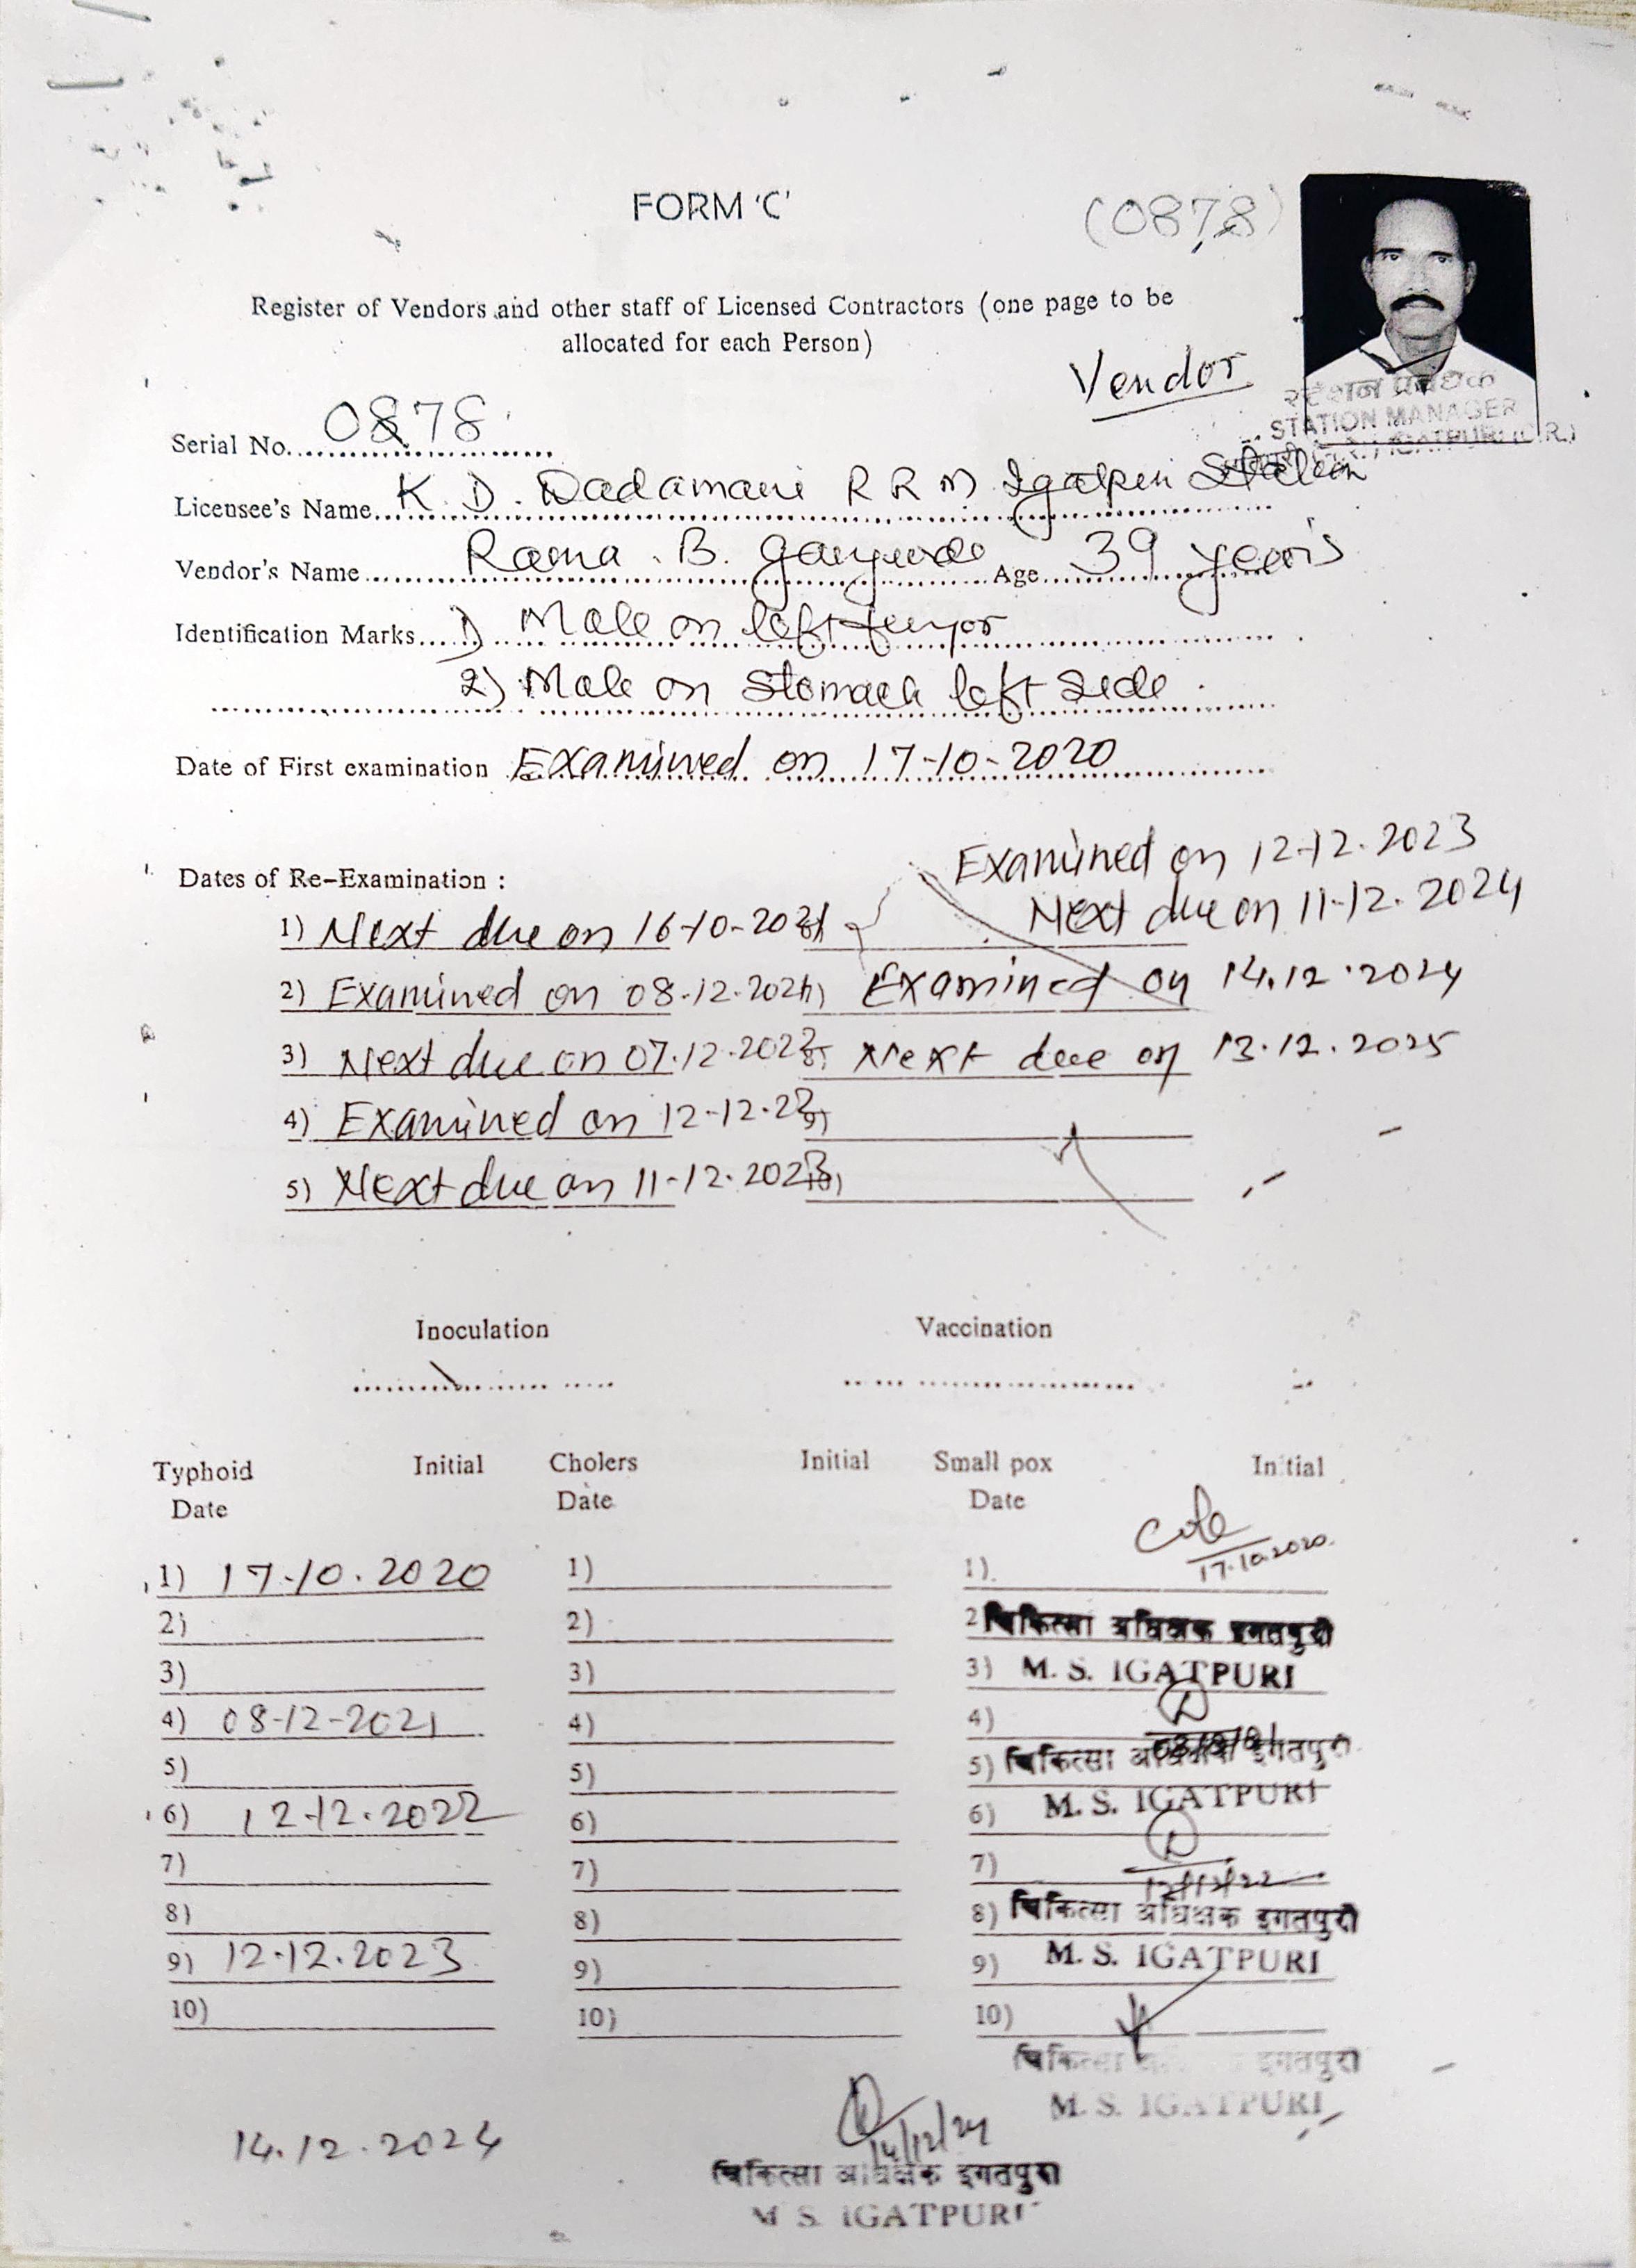 FORM 'C'
(0878)
Register of Vendors and other staff of Licensed Contractors (one page to be
allocated for each Person)
Vendor
स्टेशन प्रबंधक
STATION MANAGER
IGATPURI (C.R.)
Serial No. 0878
Licensee's Name K. D. Dadamani R R M Igatpuri Station
Vendor's Name Rama . B. Age 39 years
Identification Marks 1) Mole on left
2) Mole on Stomach left side.
Date of First examination Examined on 17-10-2020
Examined on 12-12.2023
Dates of Re-Examination :
Next due on 11-12.2024
1) Next due on 16-10-2021
2) Examined on 08-12-2021 Examined on 14.12.2024
3) Next due on 07.12.2022 Next due on 13.12.2025
4) Examined on 12-12.22
5) Next due on 11-12.2023
Inoculation Vaccination
Typhoid Initial Cholers Initial Small pox Initial
Date Date Date
17.10.2020
1) 17-10.2020 1) 1)
2) 2) 2 चिकित्सा अधिक्षक इगतपुरी
3) 3) 3) M. S. IGATPURI
4) 08-12-2021 4) 4)
5) 5) 5) चिकित्सा अधिक्षक इगतपुरी
6) 12-12.2022 6) 6) M. S. IGATPURI
7) 7) 7) 12/12/22
8) 8) 8) चिकित्सा अधिक्षक इगतपुरी
9) 12-12.2023 9) 9) M. S. IGATPURI
10) 10) 10)
चिकित्सा इगतपुरी
M. S. IGATPURI
14.12.2024 14/12/24
चिकित्सा अधिक्षक इगतपुरी
M S. IGATPURI